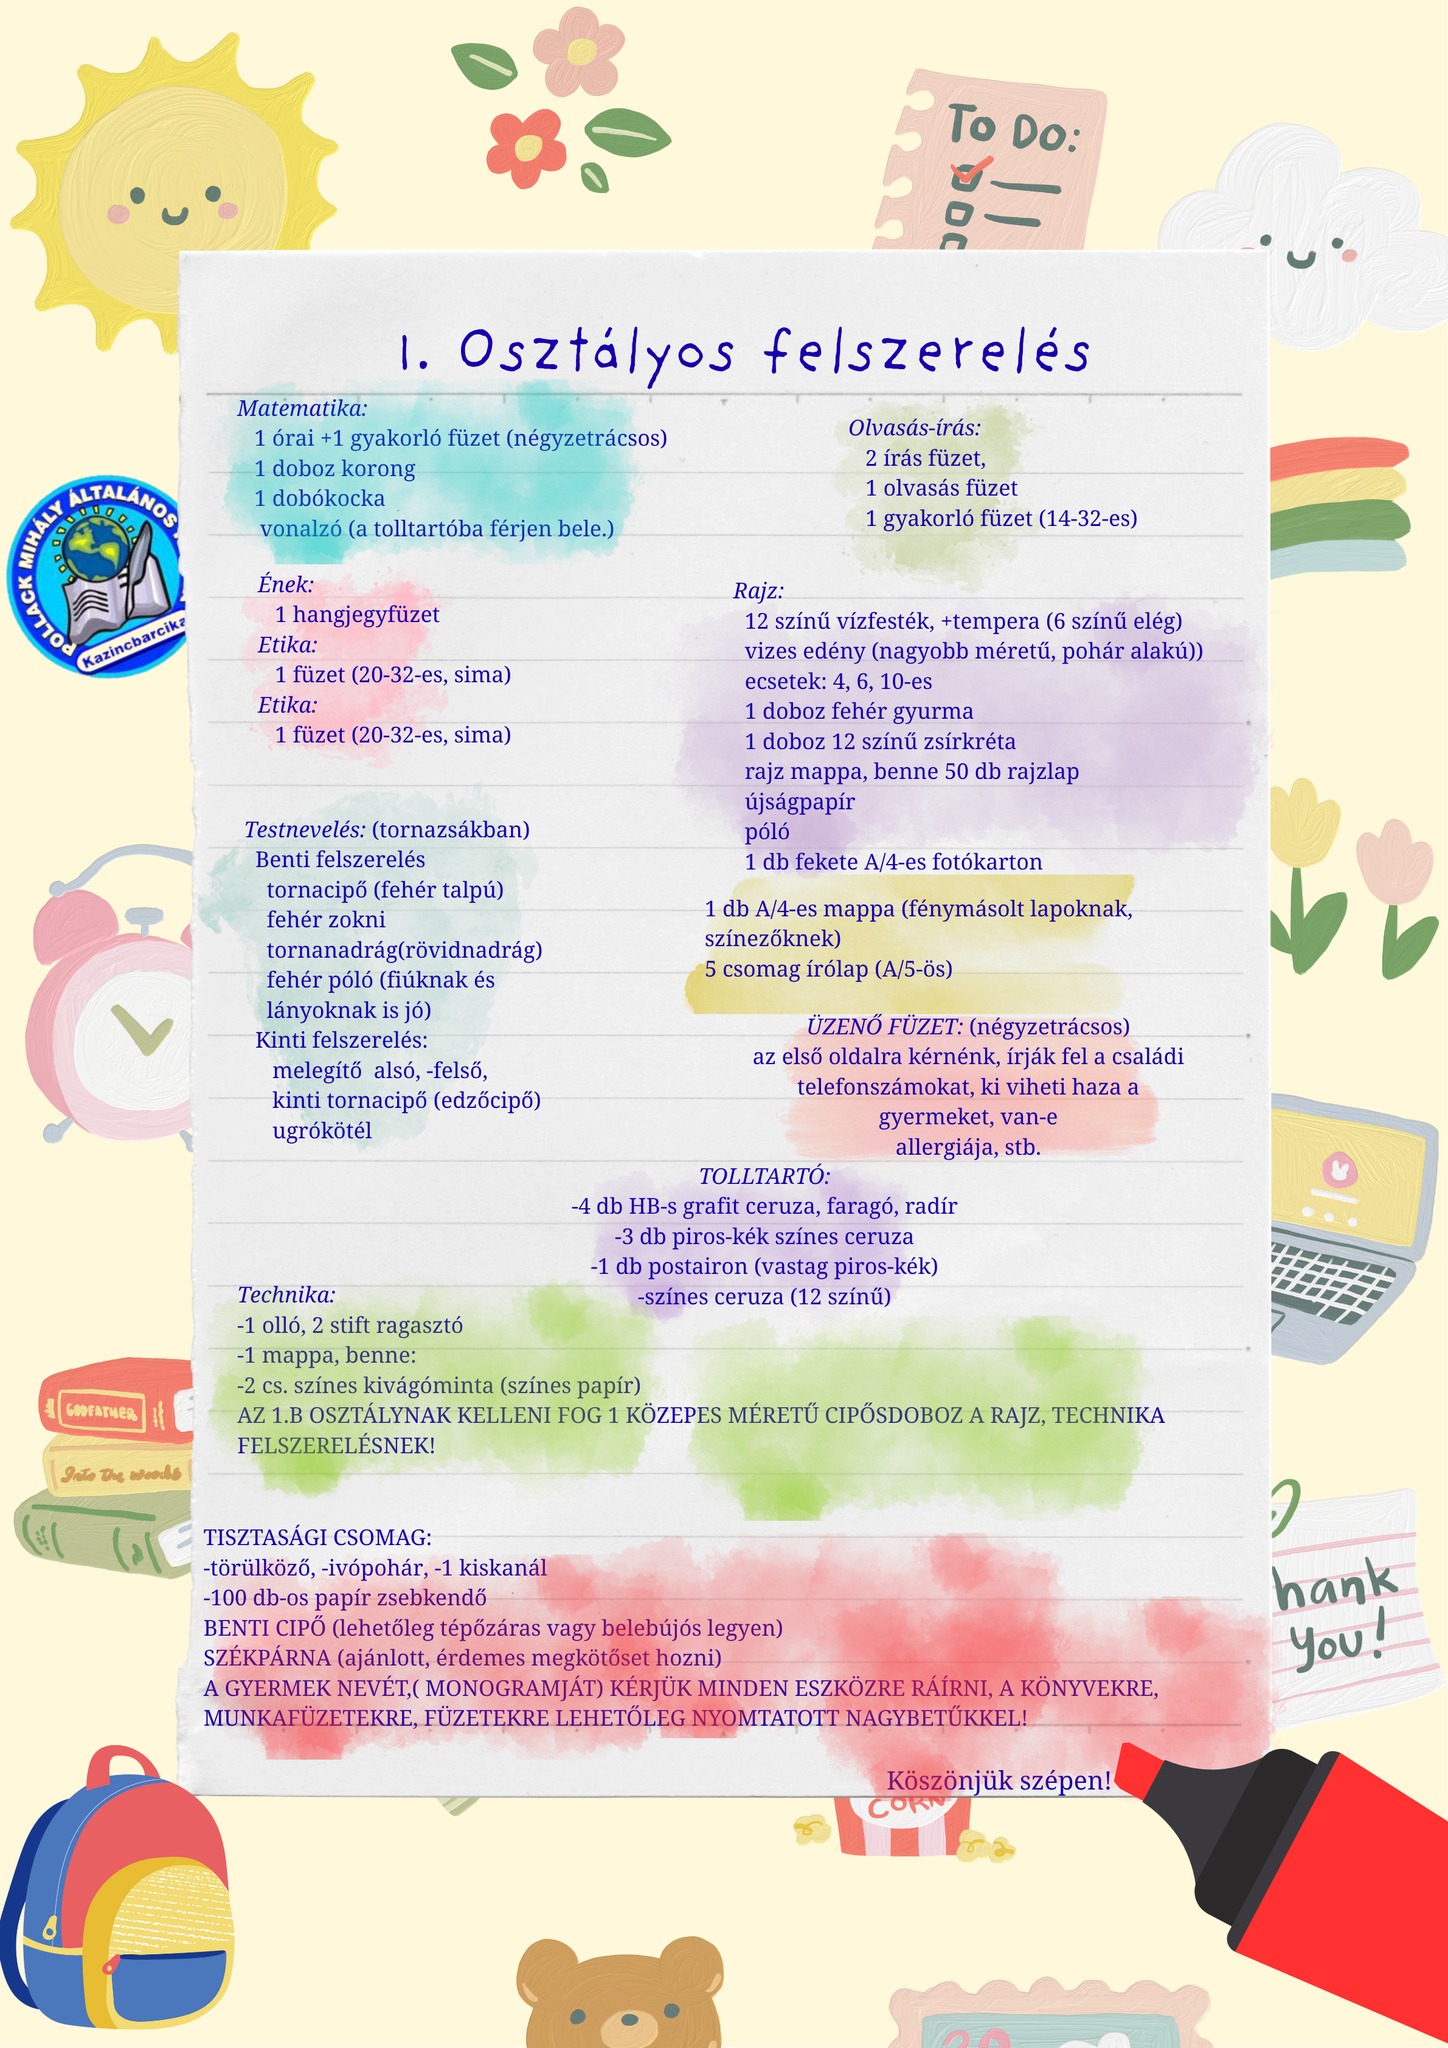 To Do:
1. Osztályos felszerelés
Matematika:
1 órai +1 gyakorló füzet (négyzetrácsos)
1 doboz korong
1 dobókocka
vonalzó (a tolltartóba férjen bele.)
Olvasás-írás:
2 írás füzet,
1 olvasás füzet
1 gyakorló füzet (14-32-es)
POLLACK MIHÁLY ÁLTALÁNOS
Kazincbarcika
Ének:
1 hangjegyfüzet
Etika:
1 füzet (20-32-es, sima)
Etika:
1 füzet (20-32-es, sima)
Rajz:
12 színű vízfesték, +tempera (6 színű elég)
vizes edény (nagyobb méretű, pohár alakú))
ecsetek: 4, 6, 10-es
1 doboz fehér gyurma
1 doboz 12 színű zsírkréta
rajz mappa, benne 50 db rajzlap
újságpapír
póló
1 db fekete A/4-es fotókarton
Testnevelés: (tornazsákban)
Benti felszerelés
tornacipő (fehér talpú)
fehér zokni
tornanadrág(rövidnadrág)
fehér póló (fiúknak és
lányoknak is jó)
Kinti felszerelés:
melegítő alsó, -felső,
kinti tornacipő (edzőcipő)
ugrókötél
1 db A/4-es mappa (fénymásolt lapoknak,
színezőknek)
5 csomag írólap (A/5-ös)
ÜZENŐ FÜZET: (négyzetrácsos)
az első oldalra kérnénk, írják fel a családi
telefonszámokat, ki viheti haza a
gyermeket, van-e
allergiája, stb.
TOLLTARTÓ:
-4 db HB-s grafit ceruza, faragó, radír
-3 db piros-kék színes ceruza
-1 db postairon (vastag piros-kék)
-színes ceruza (12 színű)
Technika:
-1 olló, 2 stift ragasztó
-1 mappa, benne:
-2 cs. színes kivágóminta (színes papír)
AZ 1.B OSZTÁLYNAK KELLENI FOG 1 KÖZEPES MÉRETŰ CIPŐSDOBOZ A RAJZ, TECHNIKA
FELSZERELÉSNEK!
GODFATHER
Into the woods
TISZTASÁGI CSOMAG:
-törülköző, -ivópohár, -1 kiskanál
-100 db-os papír zsebkendő
BENTI CIPŐ (lehetőleg tépőzáras vagy belebújós legyen)
SZÉKPÁRNA (ajánlott, érdemes megkötőset hozni)
A GYERMEK NEVÉT,( MONOGRAMJÁT) KÉRJÜK MINDEN ESZKÖZRE RÁÍRNI, A KÖNYVEKRE,
MUNKAFÜZETEKRE, FÜZETEKRE LEHETŐLEG NYOMTATOTT NAGYBETŰKKEL!
hank
you!
Köszönjük szépen!
CORN